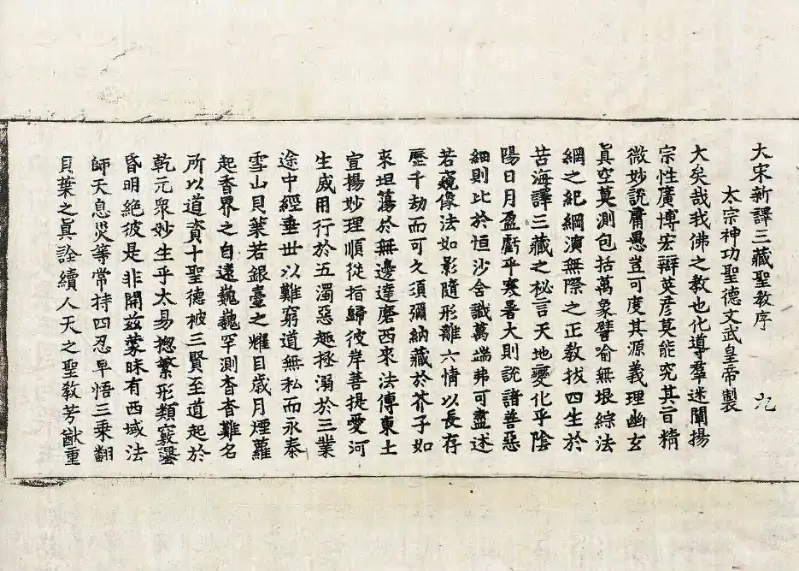 大宋新譯三藏聖教序
太宗神功聖德文武皇帝製
大矣哉我佛之教也化導羣迷闡揚
宗性廣博宏辯英彥莫能究其旨精
微妙說庸愚豈可度其源義理幽玄
真空莫測包括萬象譬喻無垠綜法
網之紀綱演無際之正教拔四生於
苦海譯三藏之秘言天地變化乎陰
陽日月盈虧乎寒暑大則說諸善惡
細則比於恒沙含識萬端弗可盡述
若窺像法如影隨形離六情以長存
歷千劫而可久須彌納藏於芥子如
來坦蕩於無邊達磨西來法傳東土
宣揚妙理順從指歸彼岸菩提愛河
生滅用行於五濁惡趣拯溺於三業
途中經垂世以難窮道無私而永泰
雪山貝葉若銀臺之耀目歲月煙蘿
起香界之自遠巍巍罕測杳杳難名
所以道賷十聖德被三賢至道起於
乾元衆妙生乎太易揔繁形類竅鑿
昏明絕彼是非開茲蒙昧有西域法
師天息災等常持四忍早悟三乘翻
貝葉之真詮續人天之聖教芳猷重